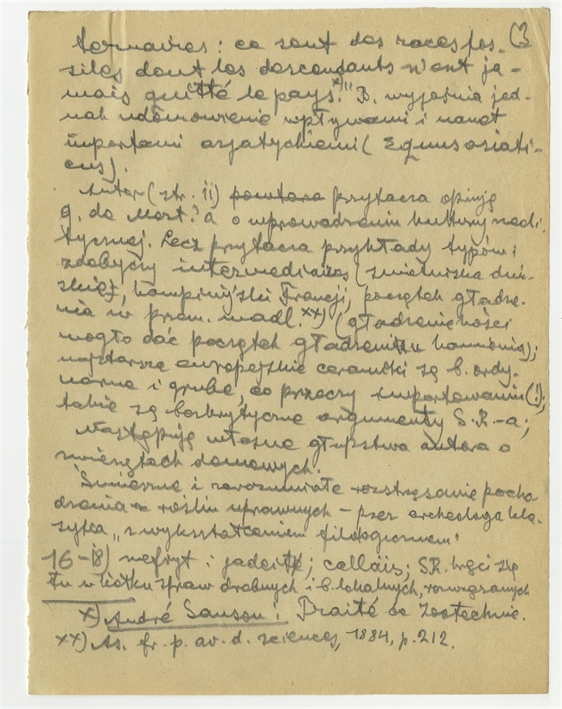 ternaires : ce sont des races fos- (3
siles dont les descendants n'ont ja-
mais quitté le pays." x) B. wyjaśnia jed-
nak udomowienie wpływami i nawet
importami azjatyckiemi (Equus asiati-
cus).
Autor (str. 11) powtarza przytacza opinję
g. de Mort. a o wprowadzeniu kultury neoli-
tycznej. Lecz przytacza przykłady typów i
zdobyczy intermediaires (śmietniska duń-
skie, kampinijski Francji, początek gładze-
nia w prow. madl. xx) (gładzenie kości
mogło dać początek gładzeniu kamienia);
najstarsze europejskie ceramiki są b. ordy-
narne i grube, co przeczy importowaniu (!);
takie są bezkrytyczne argumenty S.R.-a;
Następują własne głupstwa autora o
zwierzętach domowych.
Śmieszne i zarozumiałe roztrząsanie pocho
dzenia roślin uprawnych – przez archeologa kla-
syka „z wykształceniem filologicznem"
16-18) nefryt i jadeit; callais; S.R. bgci się
tu w spraw drobnych i b. lokalnych, rozwiązanych
x) André Sanson : Traité de Zootechnie.
xx) As. fr. p. av. d. sciences, 1884, p. 212.